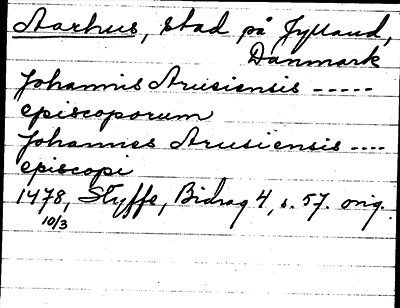 Aarhus, stad på Jylland,
Danmark
Johannis Arusiensis -----
episcoporum
Johannes Arusiensis ----
episcopi
1478, Styffe, Bidrag 4, s. 57. orig.
10/3